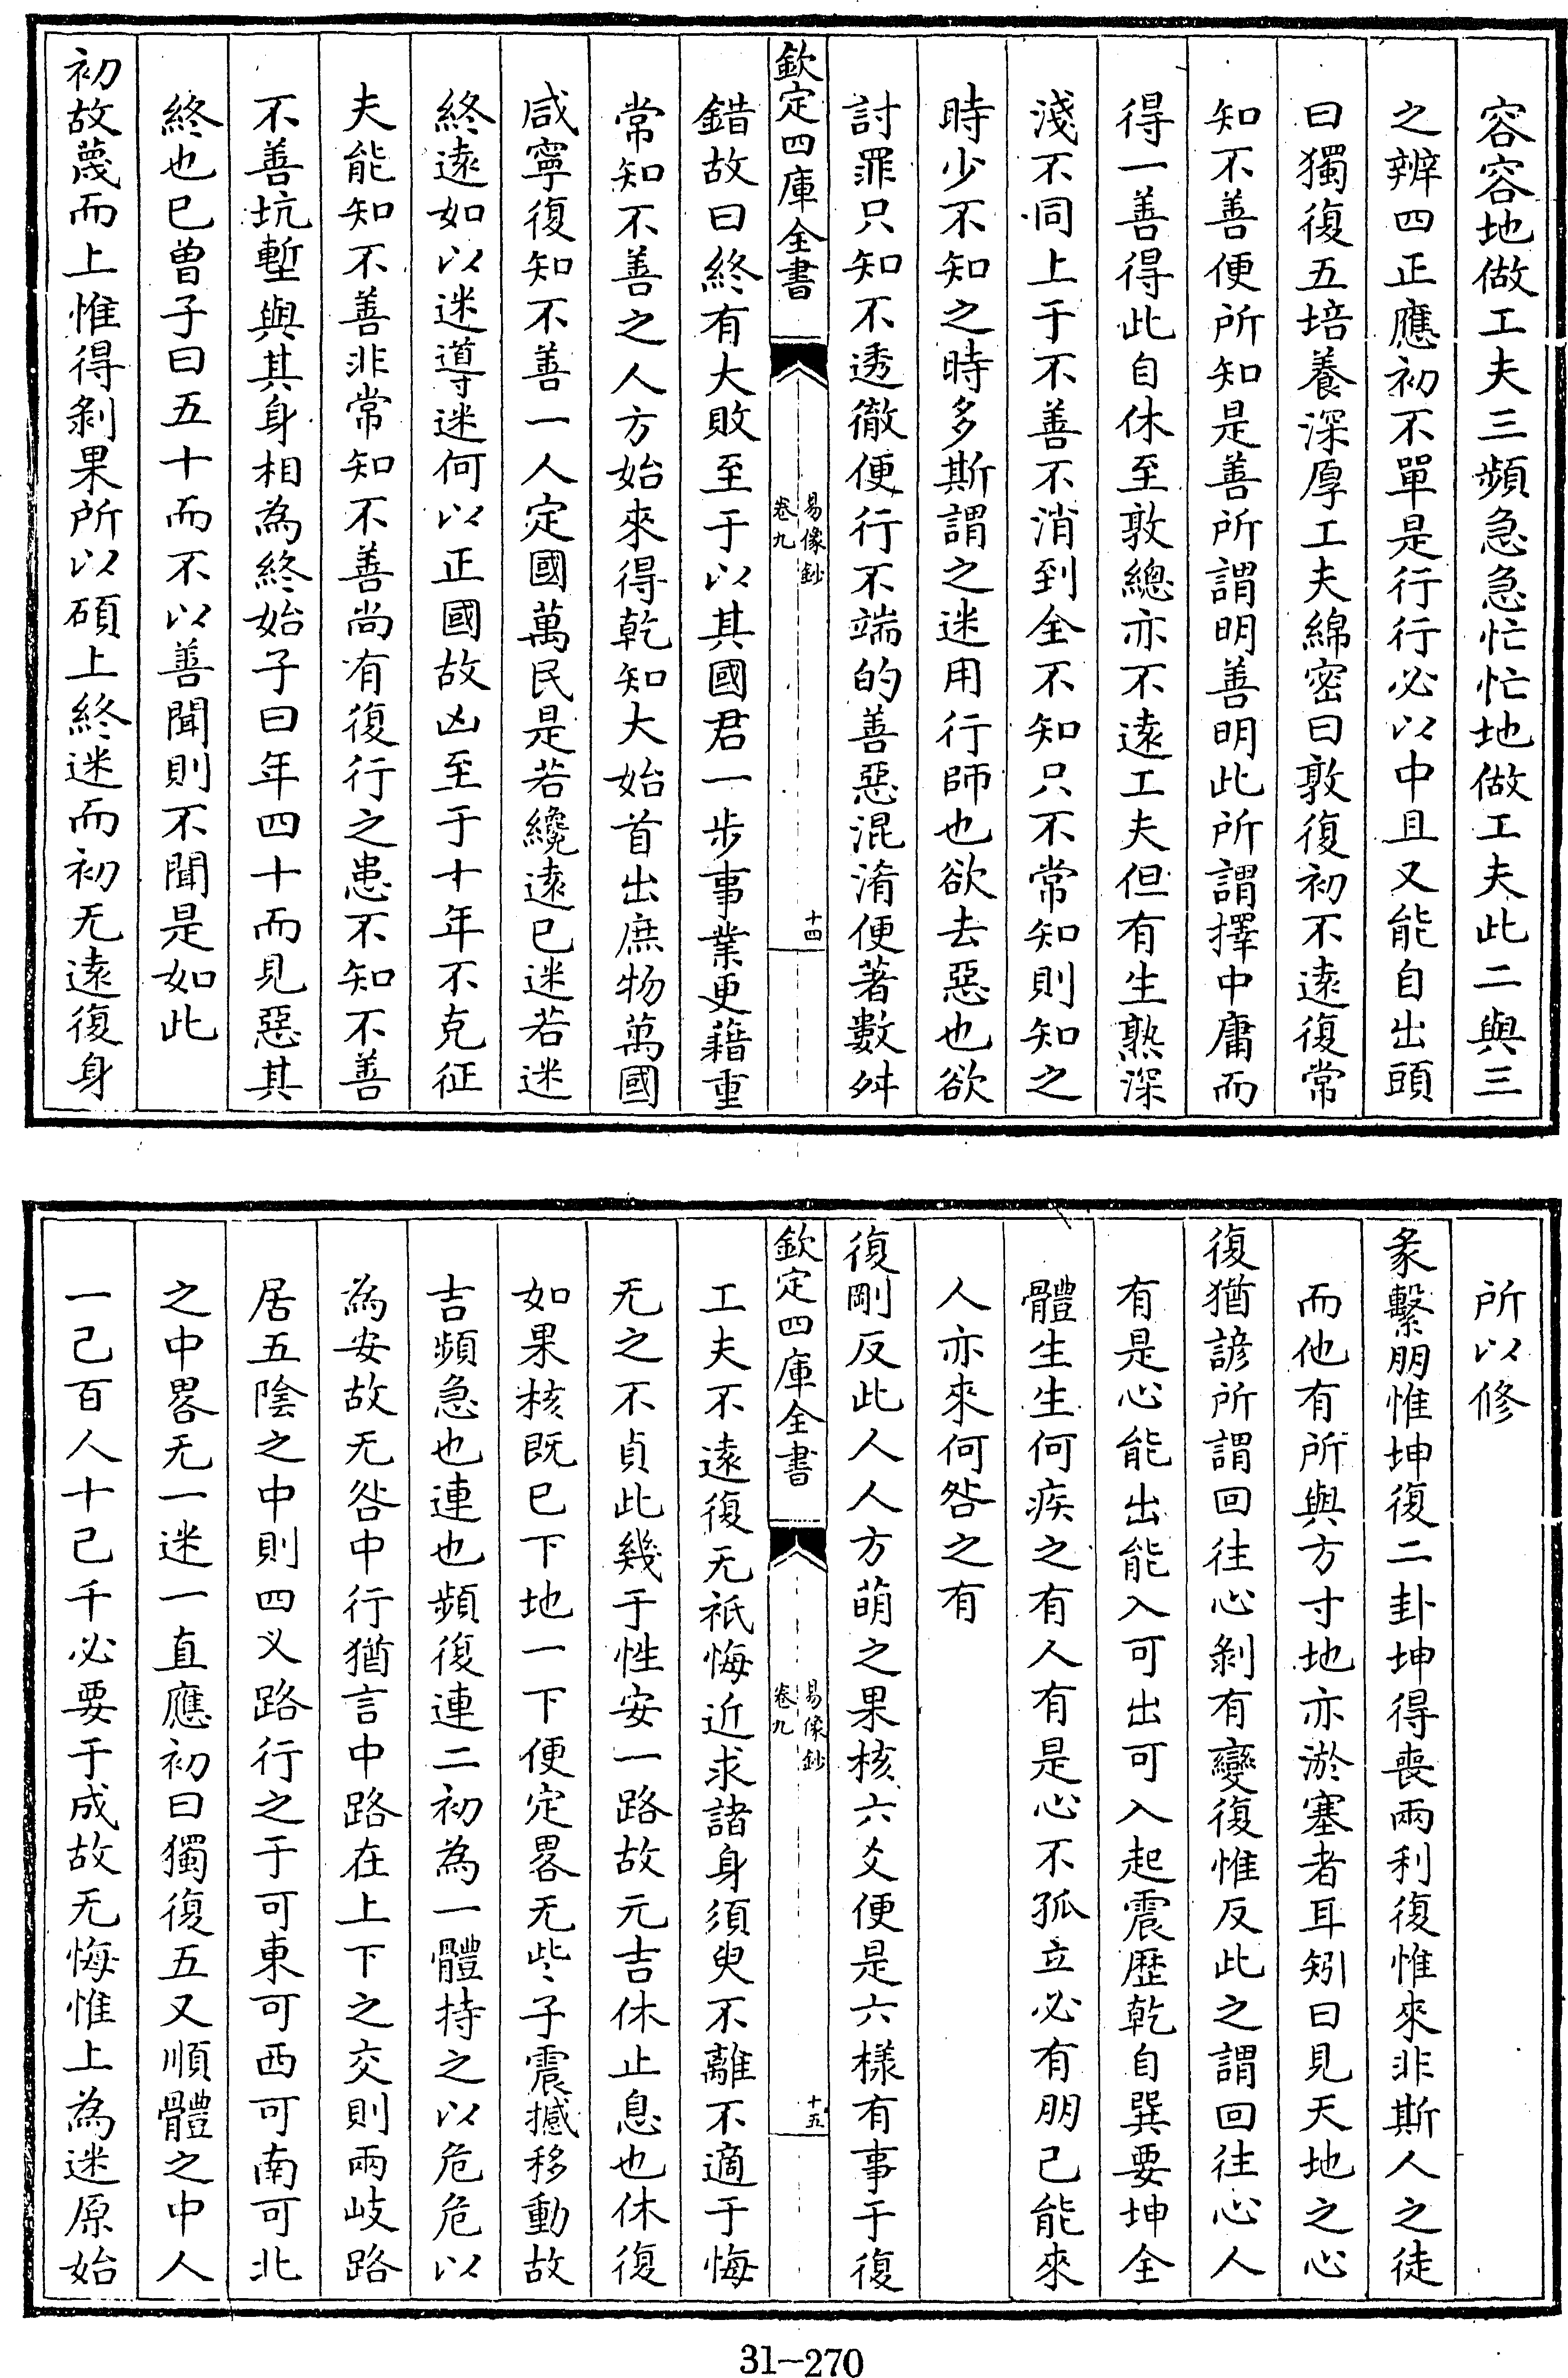 容容地做工夫三頻急急忙忙地做工夫此二與三
之辨四正應初不單是行行必以中且又能自出頭
曰獨復五培養深厚工夫綿密曰敦復初不遠復常
知不善便所知是善所謂明善明此所謂擇中庸而
得一善得此自休至敦總亦不遠工夫但有生熟深
淺不同上于不善不消到全不知只不常知則知之
時少不知之時多斯謂之迷用行師也欲去惡也欲
討罪只知不透徹便行不端的善惡混淆便著數舛
欽定四庫全書
易像鈔
卷九
十四
錯故曰終有大敗至于以其國君一步事業更藉重
常知不善之人方始來得乾知大始首出庶物萬國
咸寧復知不善一人定國萬民是若纔遠已迷若迷
終遠如以迷導迷何以正國故凶至于十年不克征
夫能知不善非常知不善尚有復行之患不知不善
不善坑塹與其身相為終始子曰年四十而見惡其
終也已曾子曰五十而不以善聞則不聞是如此
初故蔑而上惟得剝果所以碩上終迷而初无遠復身
所以修
彖繫朋惟坤復二卦坤得喪兩利復惟來非斯人之徒
而他有所與方寸地亦淤塞者耳矧曰見天地之心
復猶諺所謂回往心剝有變復惟反此之謂回往心人
有是心能出能入可出可入起震歷乾自巽要坤全
體生生何疾之有人有是心不孤立必有朋己能來
人亦來何咎之有
復剛反此人人方萌之果核六爻便是六樣有事于復
欽定四庫全書
易像鈔
卷九
十五
工夫不遠復无祇悔近求諸身須臾不離不適于悔
无之不貞此幾于性安一路故元吉休止息也休復
如果核既已下地一下便定畧无些子震撼移動故
吉頻急也連也頻復連二初為一體持之以危危以
為安故无咎中行猶言中路在上下之交則兩岐路
居五陰之中則四义路行之于可東可西可南可北
之中畧无一迷一直應初曰獨復五又順體之中人
一己百人十己千必要于成故无悔惟上為迷原始
31-270